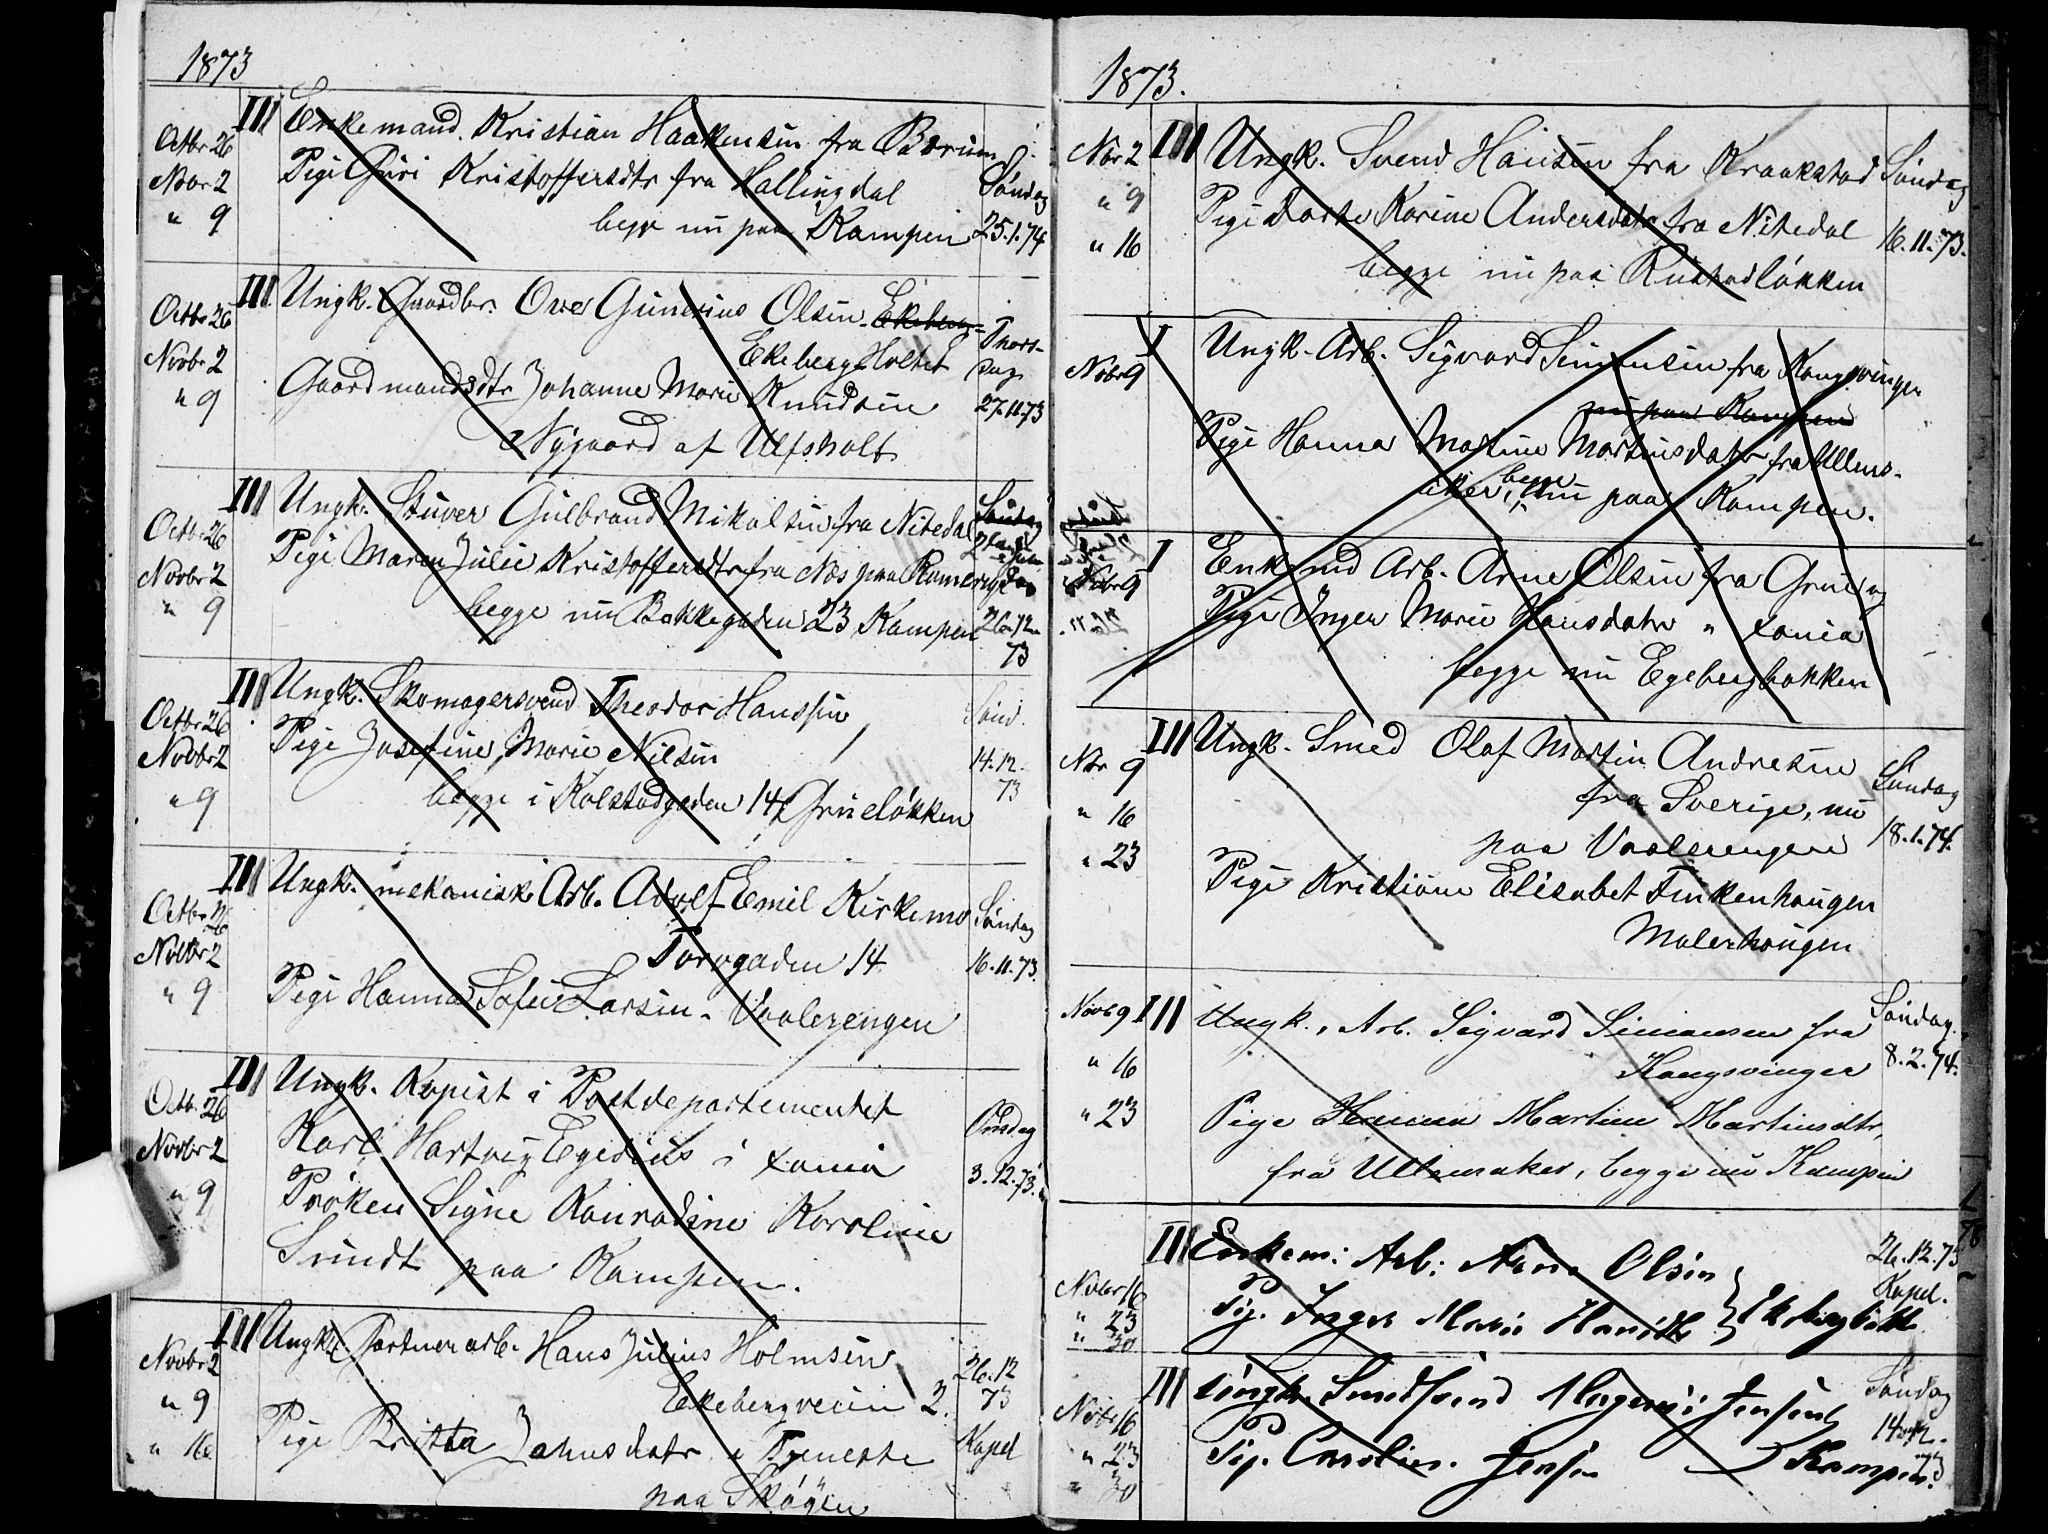 1873
Octbr 26 III Enkemand. Kristian Haakensen fra Bærum
Novbr 2 Pige Guri Kristoffersdtr fra Hallingdal Søndag
" 9 begge nu paa Kampen 25.1.74
Octbr 26 III Ungk. Gaardbr. Ove Gunerius Olsen Ekeberg-
Novbr 2 Ekeberg-Holtet Thors-
Gaardmandsdtr Johanne Marie Knudsen dag
" 9 27.11.73
Nygaard af Ulfsholt
III Ungk. Stuver Gulbrand Mikalsen fra Nitedal Søndag
Octbr 26 Pige Maren Julie Kristoffersdtr fra Næs paa Romerige
Novbr 2
" 9 begge nu Bakkegaden 23 Kampen 26.12.
73
III Ungk. Skomagersvend Theodor Hanssen,
Octbr 26 Pige Josefine Marie Nilsen Sønd.
Novbr 2 14.12.
" 9 begge i Kolstadgaden 14, Grueløkken 73
III Ungk. mekanisk Arb. Adolf Emil Kirkemo Søndag
Octbr 26
Novbr 2 Torvgaden 14 16.11.73.
" 9 Pige Hanna Sofie Larsen. Vaalerengen
III Ungk. Kopist i Postdepartementet
Octb. 26 Karl Hartvig Egidius i Xania Onsdag
Novbr 2 Frøken Signe Konradine Karoline 3.12.73.
" 9 Sundt paa Kampen.
III Ungk. Gartnerarb. Hans Julius Holmsen
Novbr 2 Ekebergveien 2. 26.12
" 9 73
" 16 Pige Britta Johnsdatr i Tjeneste Kapel
paa Skøyen
1873.
Nov 2 III Ungk. Svend Hansen fra Kraakstad Søndag
" 9 Pige Dorthe Karine Andersdatr fra Nitedal
" 16 16.11.73.
begge nu paa Rustadløkken
I Ungk. Arb. Sigvard Simensen fra Kongsvinger
Novbr 9 nu paa Kampen
Pige Hanna Martine Martinsdatr fra Ullens-
aker, begge nu paa Kampen.
I Enkemd Arb. Arne Olsen fra Grue og
Novbr 9 Pige Inger Marie Hansdatr " Xania
begge nu Egebergbakken
III Ungk. Smed Olaf Martin Andresen
Nvbr 9 fra Sverige, nu Søndag
" 16 paa Vaalerengen 18.1.74.
" 23 Pige Kristiane Elisabet Finkenhougen
Malerhougen
Novb 9 III Ungk., Arb. Sigvard Simensen fra Søndag.
" 16 Kongsvinger 8.2.74.
" 23 Pige Hanna Martine Martinsdtr,
fra Ullensaker, begge nu Kampen
III Enkem: Arb: Arne Olsen 26.12.73
Novbr 16 Kapel.
" 23 Pig. Inger Marie Hansdtr } Ekebergbakk
" 30
III Ungk. Smedsvend Magnus Jensen Søndag
Novbr 16 14.12.
" 23 Pig. Caroline Jensen Kampen. 73
" 30